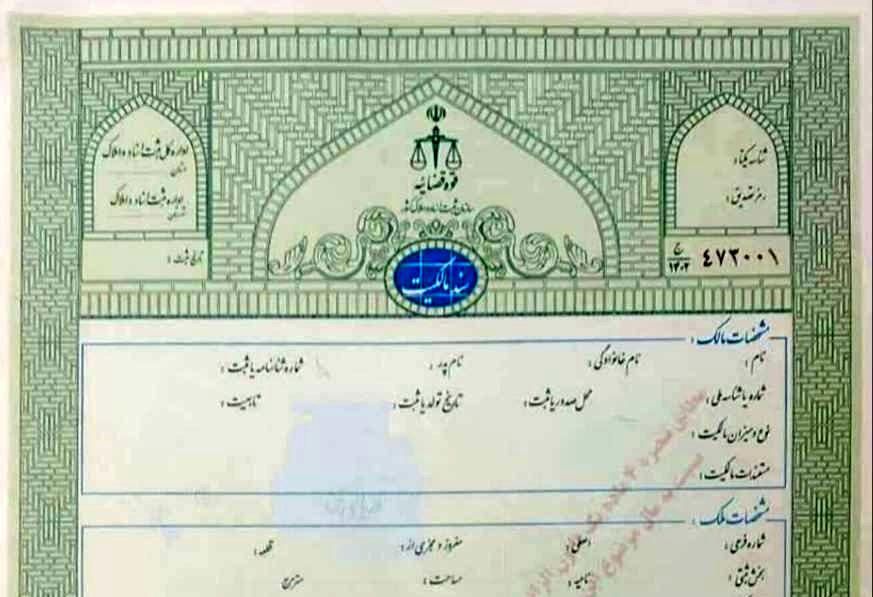 قوه قضائیه
سازمان ثبت اسناد و املاک کشور
شناسه یکتا :
رمز تصدیق :
اداره کل ثبت اسناد و املاک
استان
اداره ثبت اسناد و املاک
شهرستان
تاریخ ثبت :
۴۷۳۰۰۱ ج ۱۴۰۲
سند مالکیت
مشخصات مالک :
نام : نام خانوادگی : نام پدر : شماره شناسنامه یا ثبت :
شماره یا شناسه ملی : محل صدور یا ثبت : تاریخ تولد یا ثبت : تابعیت :
نوع و میزان مالکیت :
مستندات مالکیت :
مشخصات ملک :
شماره فرعی : اصلی : مفروز و مجزی از : قطعه :
بخش ثبتی : ناحیه : مساحت : مترمربع